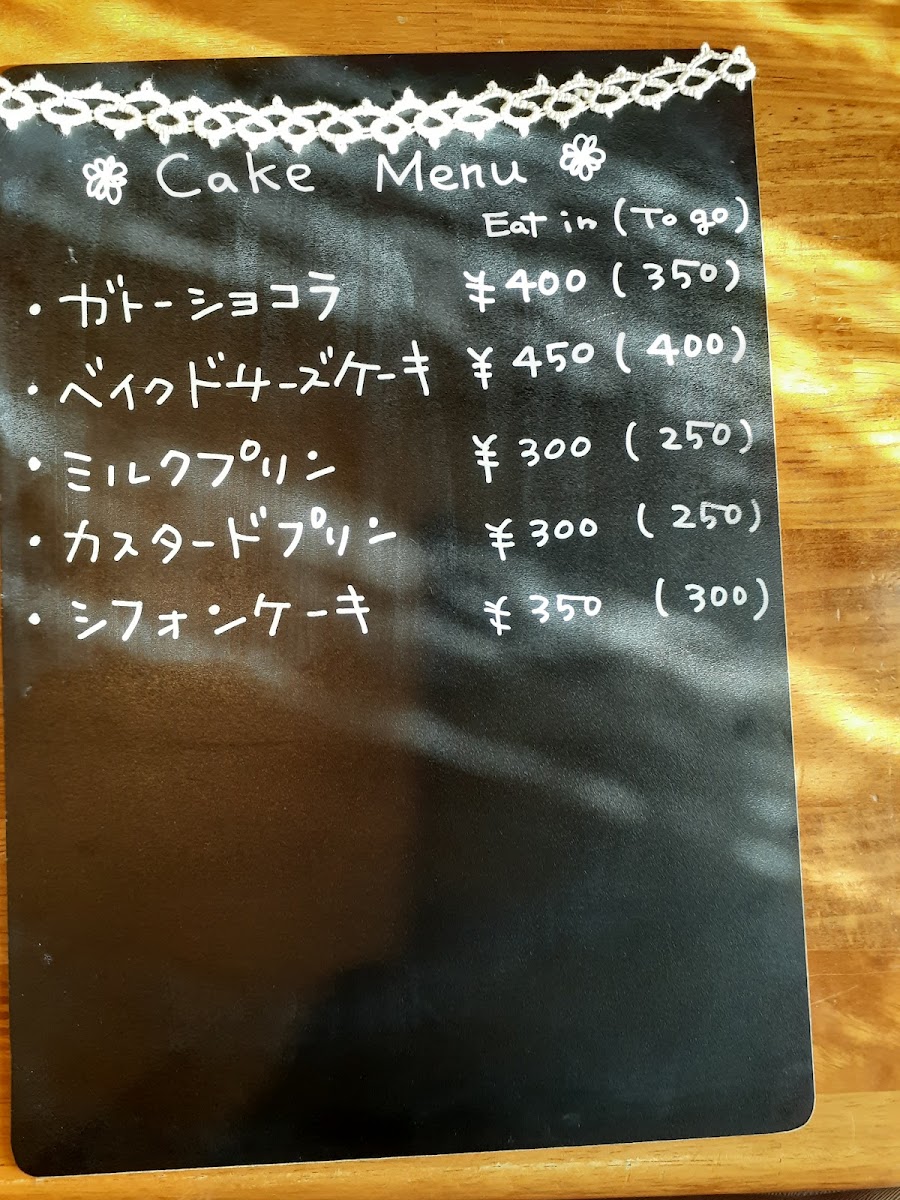 Cake Menu
Eat in (To go)
・ガトーショコラ ¥400 (350)
・ベイクドチーズケーキ ¥450 (400)
・ミルクプリン ¥300 (250)
・カスタードプリン ¥300 (250)
・シフォンケーキ ¥350 (300)